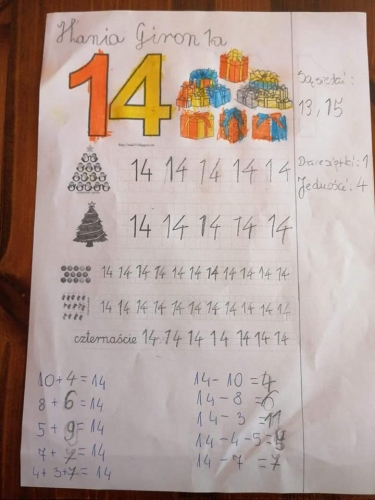 Hania Giron 1a
14
Sąsiedzi:
13, 15
Dziesiątki: 1
Jedności: 4
14 14 14 14 14
14 14 14 14 14
14 14 14 14 14 14 14 14 14 14 14
14 14 14 14 14 14 14 14 14 14 14
czternaście 14 14 14 14 14 14 14 14
10 + 4 = 14
8 + 6 = 14
5 + 9 = 14
7 + = 14
4 + 3 + 7 = 14
14 - 10 = 4
14 - 8 = 6
14 - 3 = 11
14 - 4 - 5 =
14 - 7 = 7